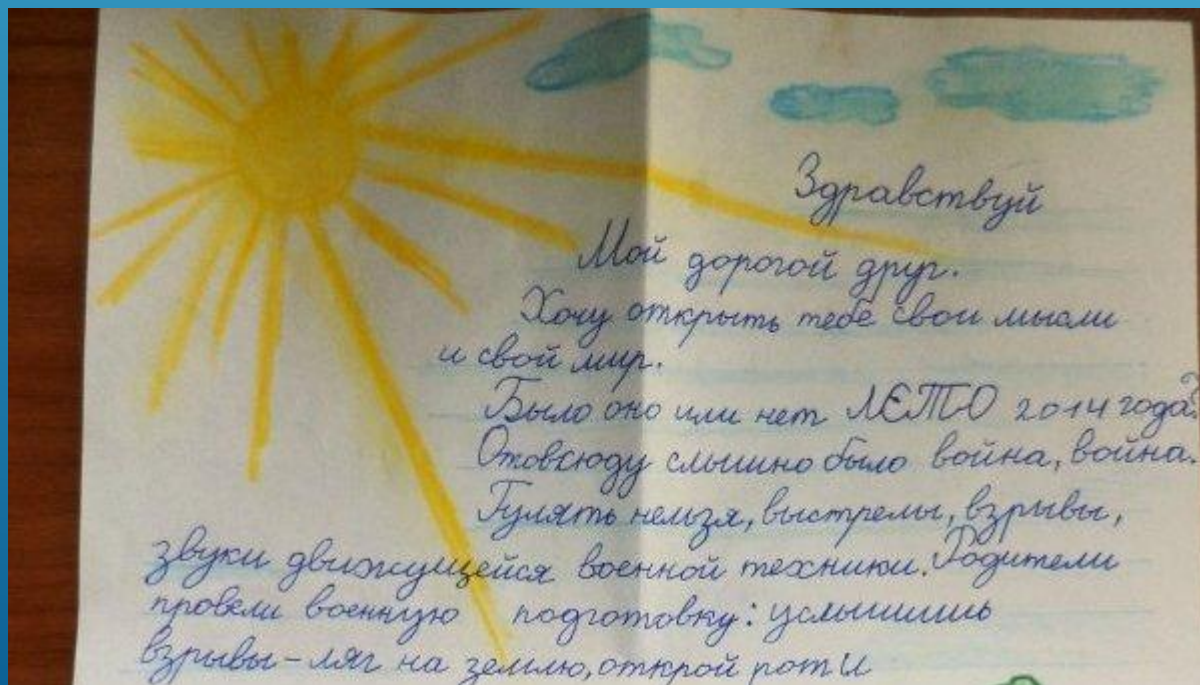 Здравствуй
Мой дорогой друг.
Хочу открыть тебе свои мысли
и свой мир.
Было оно или нет ЛЕТО 2014 года?
Отовсюду слышно было война, война.
Гулять нельзя, выстрелы, взрывы,
звуки движущейся военной техники. Родители
провели военную подготовку: услышишь
взрывы - ляг на землю, открой рот и